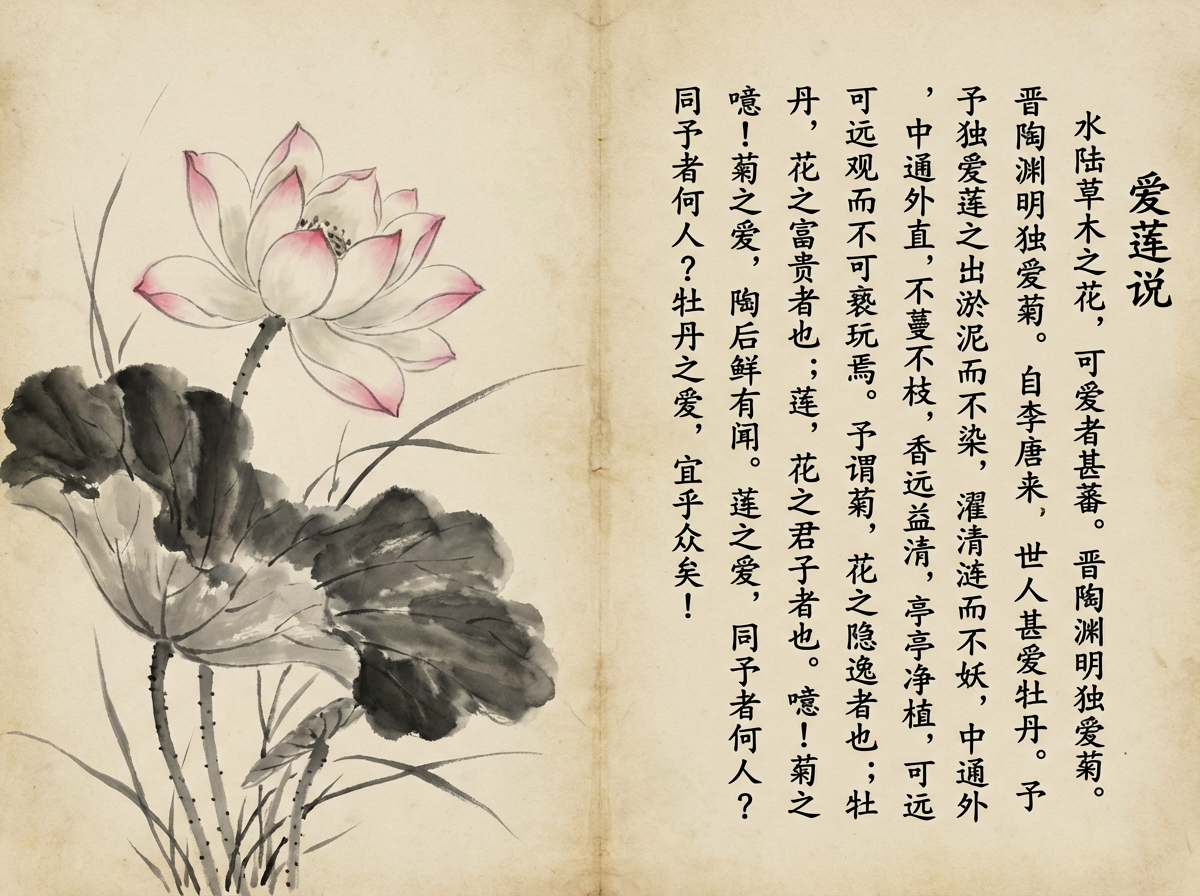 爱莲说
水陆草木之花，可爱者甚蕃。晋陶渊明独爱菊。
晋陶渊明独爱菊。自李唐来，世人甚爱牡丹。予
予独爱莲之出淤泥而不染，濯清涟而不妖，中通外
，中通外直，不蔓不枝，香远益清，亭亭净植，可远
可远观而不可亵玩焉。予谓菊，花之隐逸者也；牡
丹，花之富贵者也；莲，花之君子者也。噫！菊之
噫！菊之爱，陶后鲜有闻。莲之爱，同予者何人？
同予者何人？牡丹之爱，宜乎众矣！